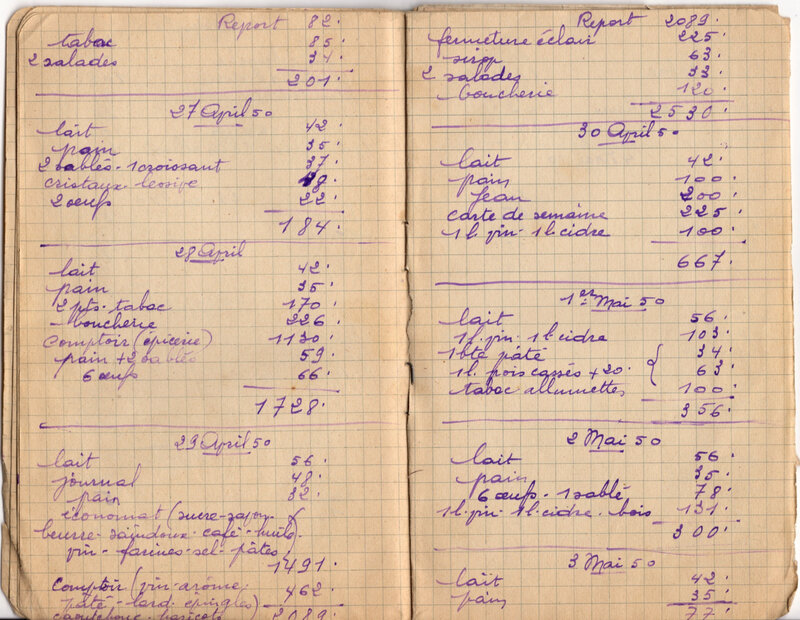 Report 82.
tabac 85.
2 salades 34.
201.
27 April 50
lait 42.
pain 35.
2 sablés - 1 croissant 37.
cristaux lessive 48.
2 oeufs 22.
184.
28 April
lait 42.
pain 35.
2 pts. tabac 170.
- boucherie 226.
Comptoir (épicerie) 1130.
pain + 2 sablés 59
6 oeufs 66.
1728.
29 April 50
lait 56.
journal 48.
pain 32.
économat (sucre-savon-
beurre-saindoux-café-huile)
vin-farines-sel-pâtes
1491.
Comptoir (vin-arôme 462
pâté-lard, épingles)
haricots) 2089.
Report 2089.
fermeture éclair 225.
sirop 63.
2 salades 33.
boucherie 120.
2530.
30 April 50
lait 42.
pain 100.
Jean 200.
carte de semaine 225.
1 l. vin - 1 l. cidre 100.
667.
1er Mai 50
lait 56.
1 l. vin - 1 l. cidre 103.
1 bte pâté 34.
1 l. pois cassés + 20. 63.
tabac allumettes 100.
356.
2 Mai 50
lait 56.
pain 35.
6 oeufs - 1 sablé 78.
1 l. vin - 1 l. cidre - bois 131.
300.
3 Mai 50
lait 42.
pain 35.
77.